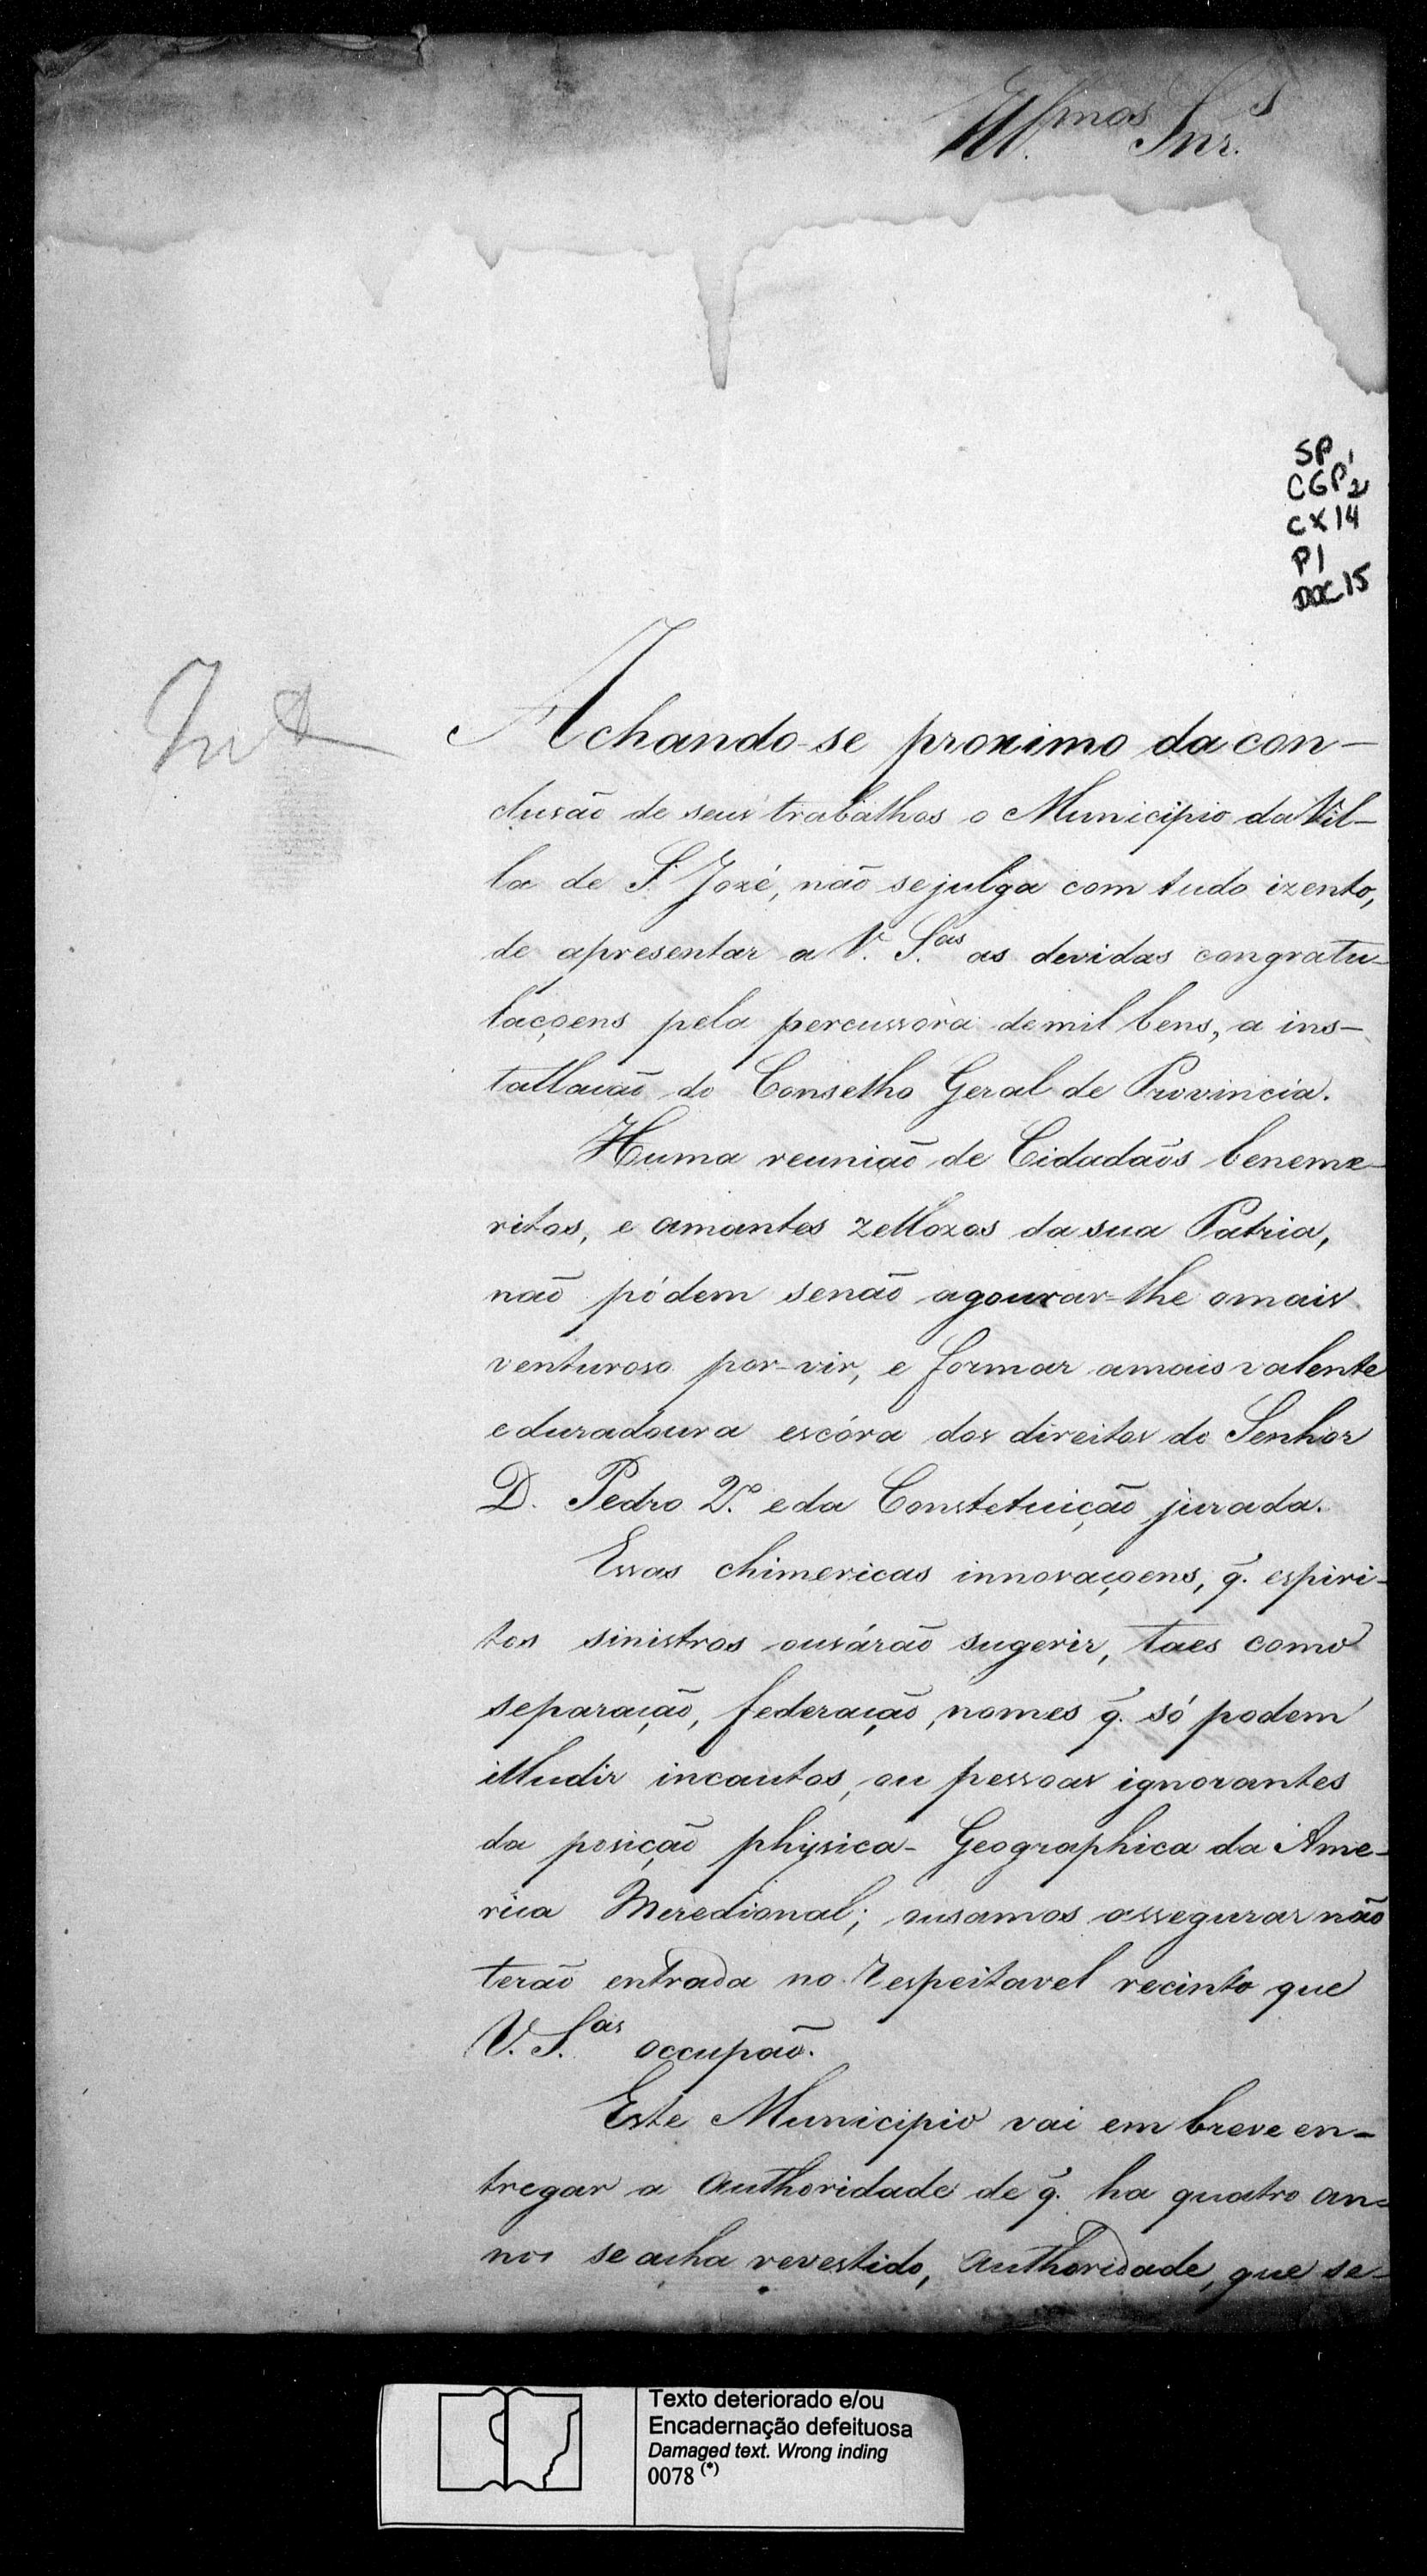 Ill.mos Snr.s
SP
CGP2
CX14
P1
DOC 15
Achando-se proximo da con-
clusão de seus trabalhos o Municipio da Vil-
la de S. Jozé, não se julga com tudo izento,
de apresentar a V. S.as as devidas congratu-
laçoens pela percussóra de mil bens, a ins-
tallação do Conselho Geral de Provincia.
Huma reunião de Cidadãos beneme-
ritos, e amantes zellozos da sua Patria,
não pódem senão agourar-lhe o mais
venturoso por-vir, e formar a mais valente
e duradoura escóra dos direitos do Senhor
D. Pedro 2.º e da Constetuição jurada.
Essas chimericas innovaçoens, q̃. espiri-
tos sinistros ousárão sugerir, taes como
separação, federação, nomes q̃. só podem
illudir incautos, ou pessoas ignorantes
da posição physica-Geographica da Ame-
rica Meredional; ousamos assegurar não
terão entrada no respeitavel recinto que
V. S.as occupão.
Este Municipio vai em breve en-
tregar a authoridade de q̃. ha quatro an-
nos se acha revestido, authoridade, que se-
Texto deteriorado e/ou
Encadernação defeituosa
Damaged text. Wrong inding
0078 (*)